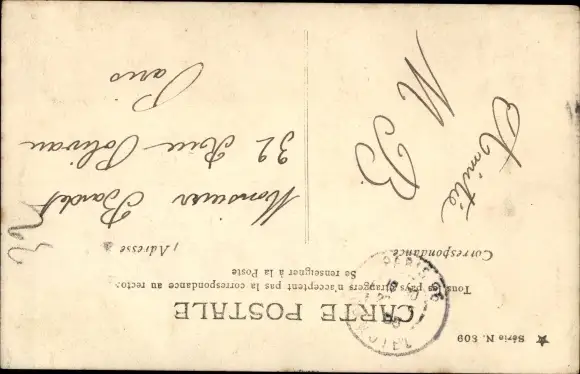 CARTE POSTALE
Tous les pays étrangers n'acceptent pas la correspondance au recto.
Se renseigner à la Poste
Correspondance
Adresse
Amitié
M B
Monsieur Bardet
32 Rue Polivau
Paris
PARIS
★ Série N. 809